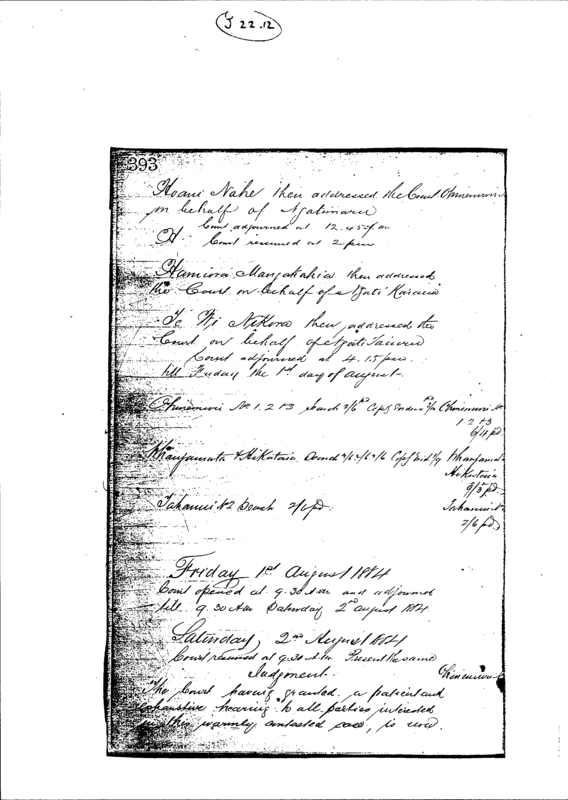 J 22.12
393
Hoani Nahe then addressed the Court Ohinemuri
on behalf of Ngatimaru
Court adjourned at 12.45 pm
H. Court resumed at 2 pm
Hamiora Mangakahia then addressed
the Court on behalf of Ngati Karaua
Te Wi Nikora then addressed the
Court on behalf of Ngati Taiuru
Court adjourned at 4.15 pm
till Friday the 1st day of August
Ohinemuri No 1. 2 & 3 Search 2/6 pd Copy 3/10 Ohinemuri No
1 2 & 3
6/4 pd
Whangamata & Hikutaia Search 2/6 2/6 2/6 Copy Whangamata
Hikutaia
pd
Tahanui No 2 Search 2/6 pd Tahanui No 2
2/6 pd
Friday 1st August 1884
Court opened at 9.30 AM and adjourned
till 9.30 AM Saturday 2nd August 1884
Saturday, 2nd August 1884
Court resumed at 9.30 A.M. Present the same
Judgment. Ohinemuri
The Court having granted a patient and
exhaustive hearing to all parties interested
in this warmly contested case, is now